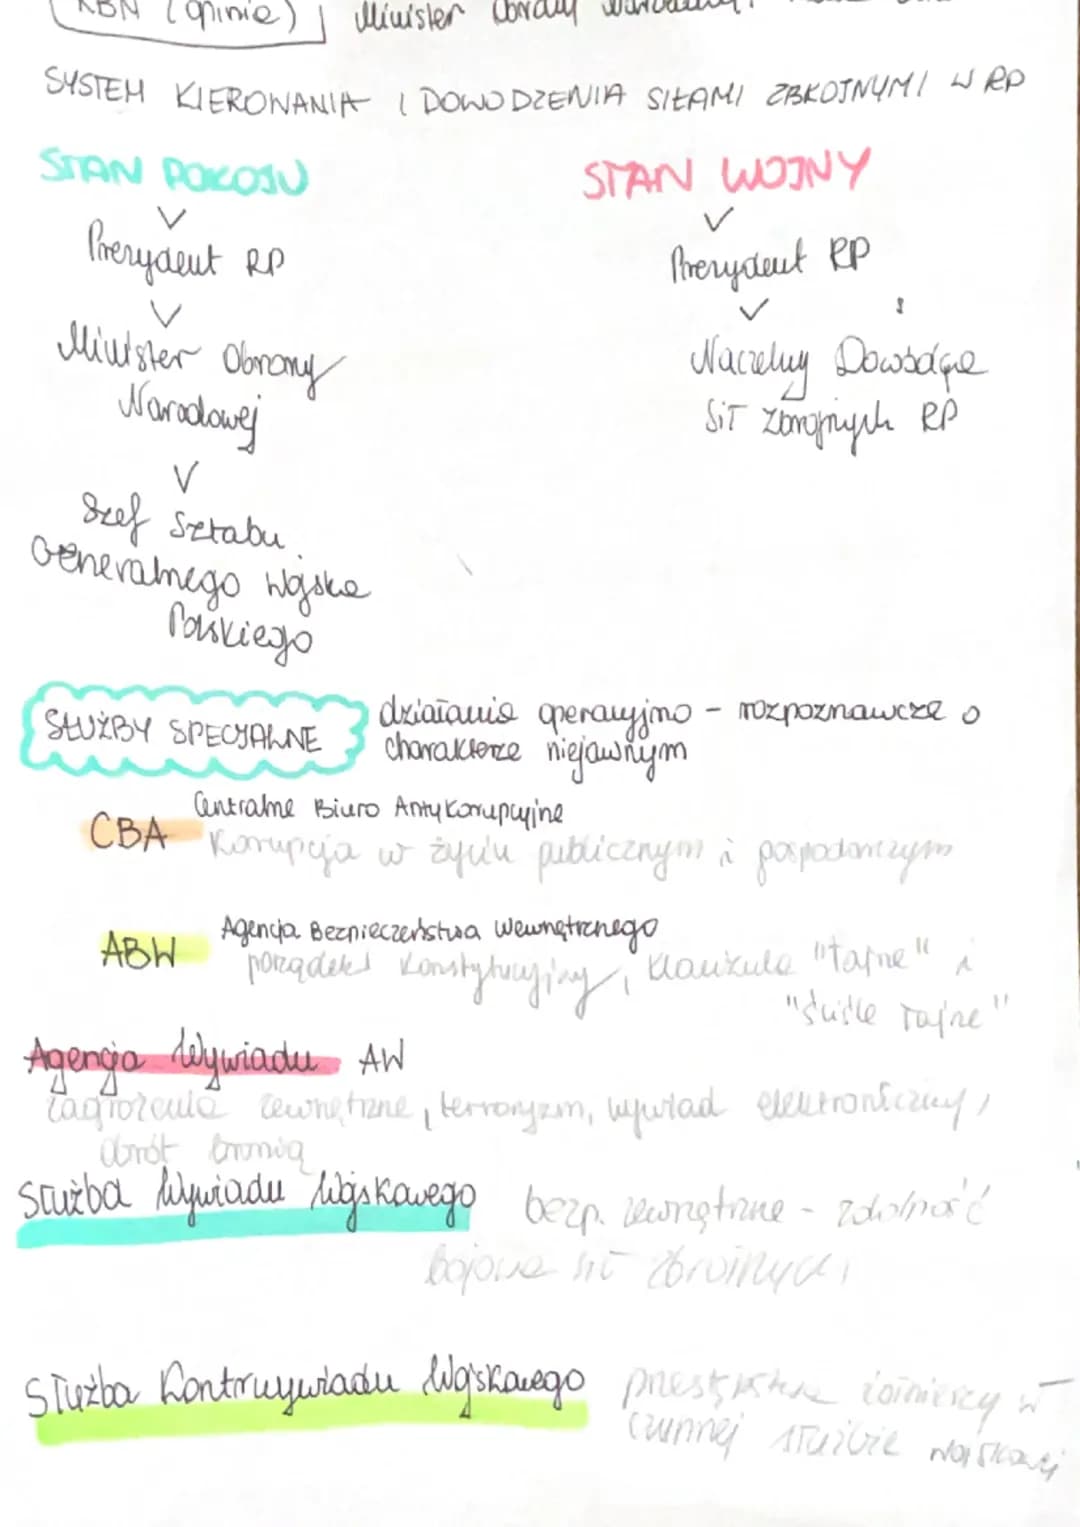 RBN (opinie) Minister Obrony
SYSTEM KIEROWANIA I DOWODZENIA SIŁAMI ZBROJNYMI W RP
STAN POKOJU
STAN WOJNY
Prezydent RP
Prezydent RP
Minister Obrony
Narodowej
Naczelny Dowódca
Sił Zbrojnych RP
Szef Sztabu
Generalnego Wojska
Polskiego
SŁUŻBY SPECJALNE
działania operacyjno - rozpoznawcze o
charakterze niejawnym
Centralne Biuro Antykorupcyjne
CBA Korupcja w życiu publicznym i gospodarczym
Agencja Bezpieczeństwa Wewnętrznego
ABW porządek konstytucyjny, klauzule "tajne" i
"ściśle tajne"
Agencja Wywiadu AW
zagrożenia zewnętrzne, terroryzm, wywiad elektroniczny,
obrót bronią
Służba Wywiadu Wojskowego bezp. zewnętrzne - zdolność
bojowa sił zbrojnych
Służba Kontrwywiadu Wojskowego przestępstwa żołnierzy w
czynnej służbie wojskowej